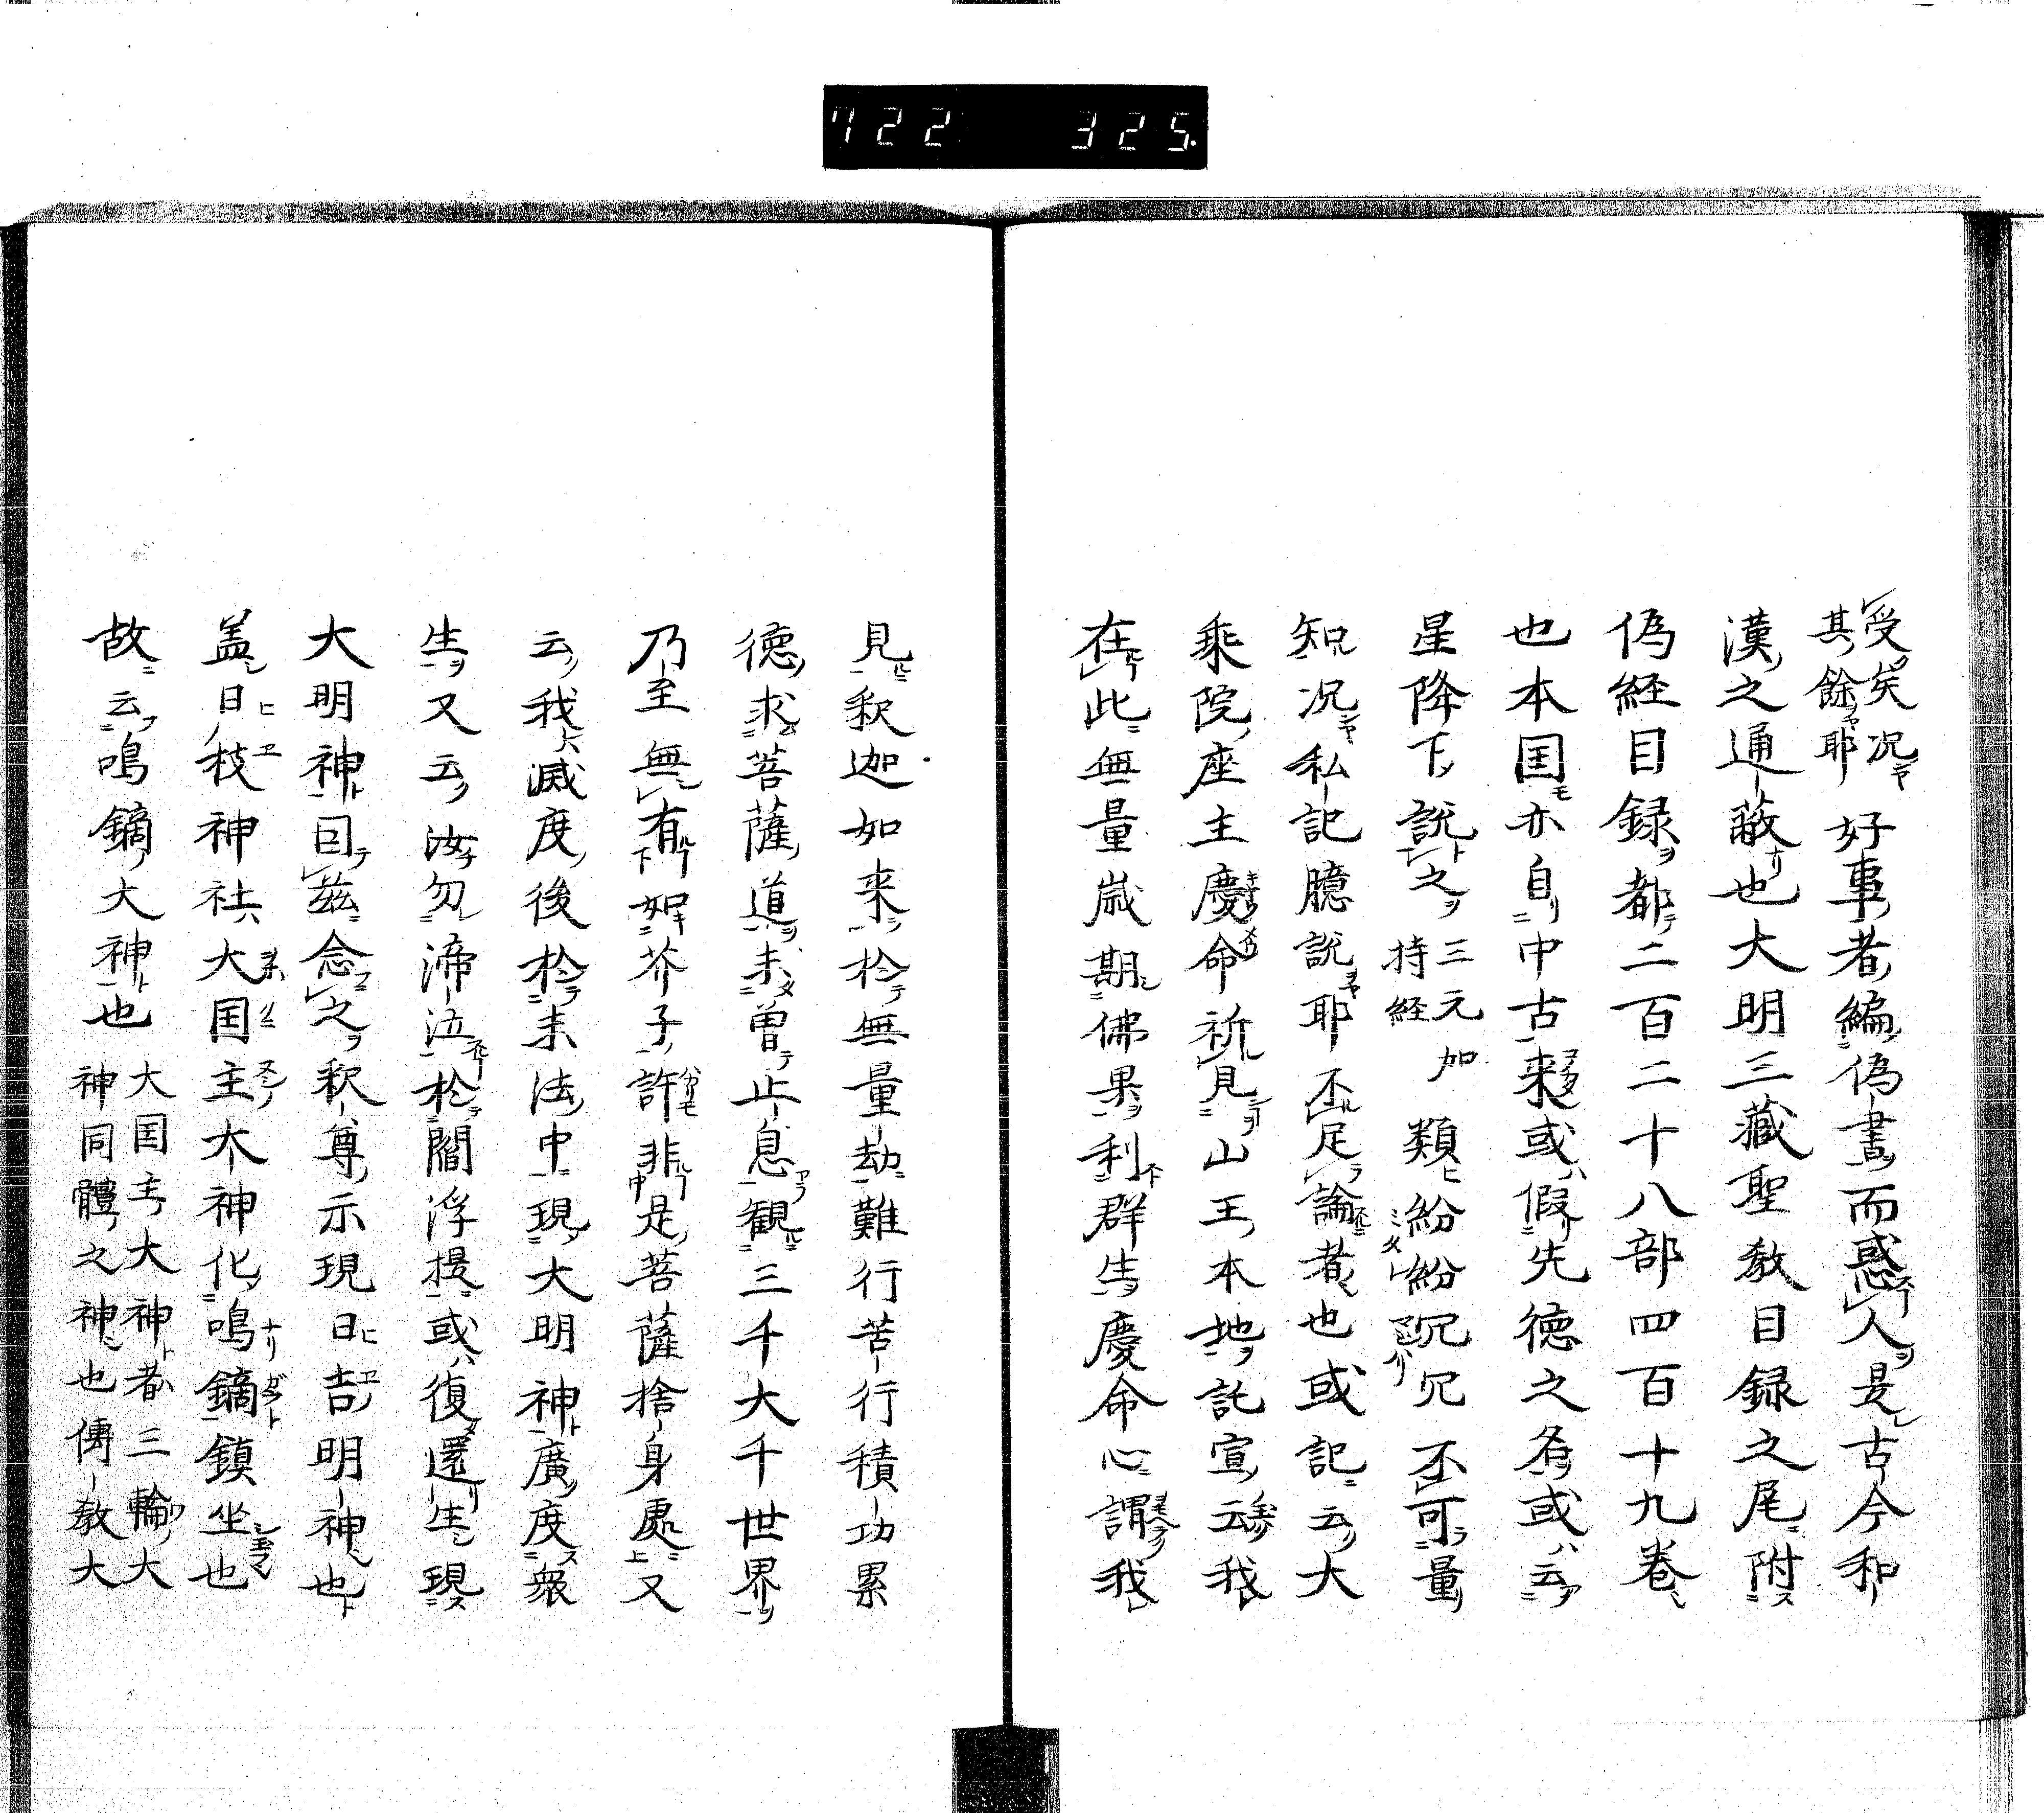 722 325
受矣況
其餘耶
好事者編偽書而惑人是古今和
漢之通蔽也大明三藏聖教目録之尾附
偽経目録都二百二十八部四百十九巻
也本国亦自中古来或假先德之名或云
星降下説之
三元加
持経
類紛紛冗冗不可量
知況私記臆説耶不足論者也或記云大
乘院座主慶命祈見山王本地託宣云我
在此無量歳期佛果利群生慶命心謂我
見釈迦如来於無量劫難行苦行積功累
德求菩薩道未曽止息観三千大千世界
乃至無有如芥子許非是菩薩捨身處又
云我滅度後於末法中現大明神廣度衆
生又云汝勿渧泣於閻浮提或復還生現
大明神因茲念之釈尊示現日吉明神也
盖日枝神社大国主大神化鳴鏑鎮坐也
故云鳴鏑大神也
大国主大神者三輪大
神同體之神也傳教大